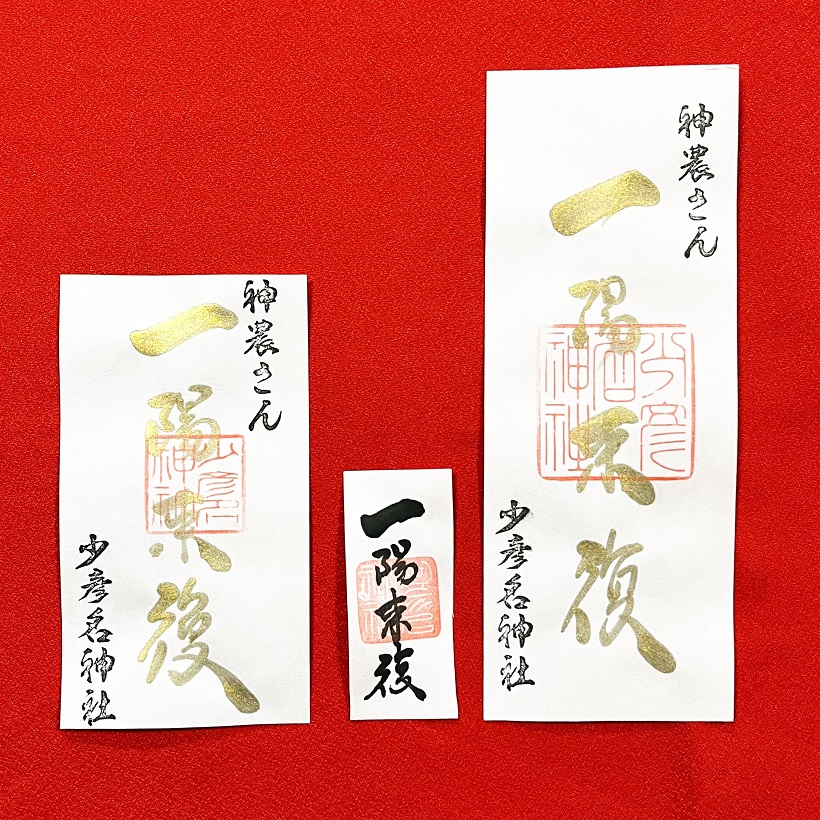 神農さん
一陽来復
少彦名神社
少彦名神社
一陽来復
神農さん
一陽来復
少彦名神社
少彦名神社